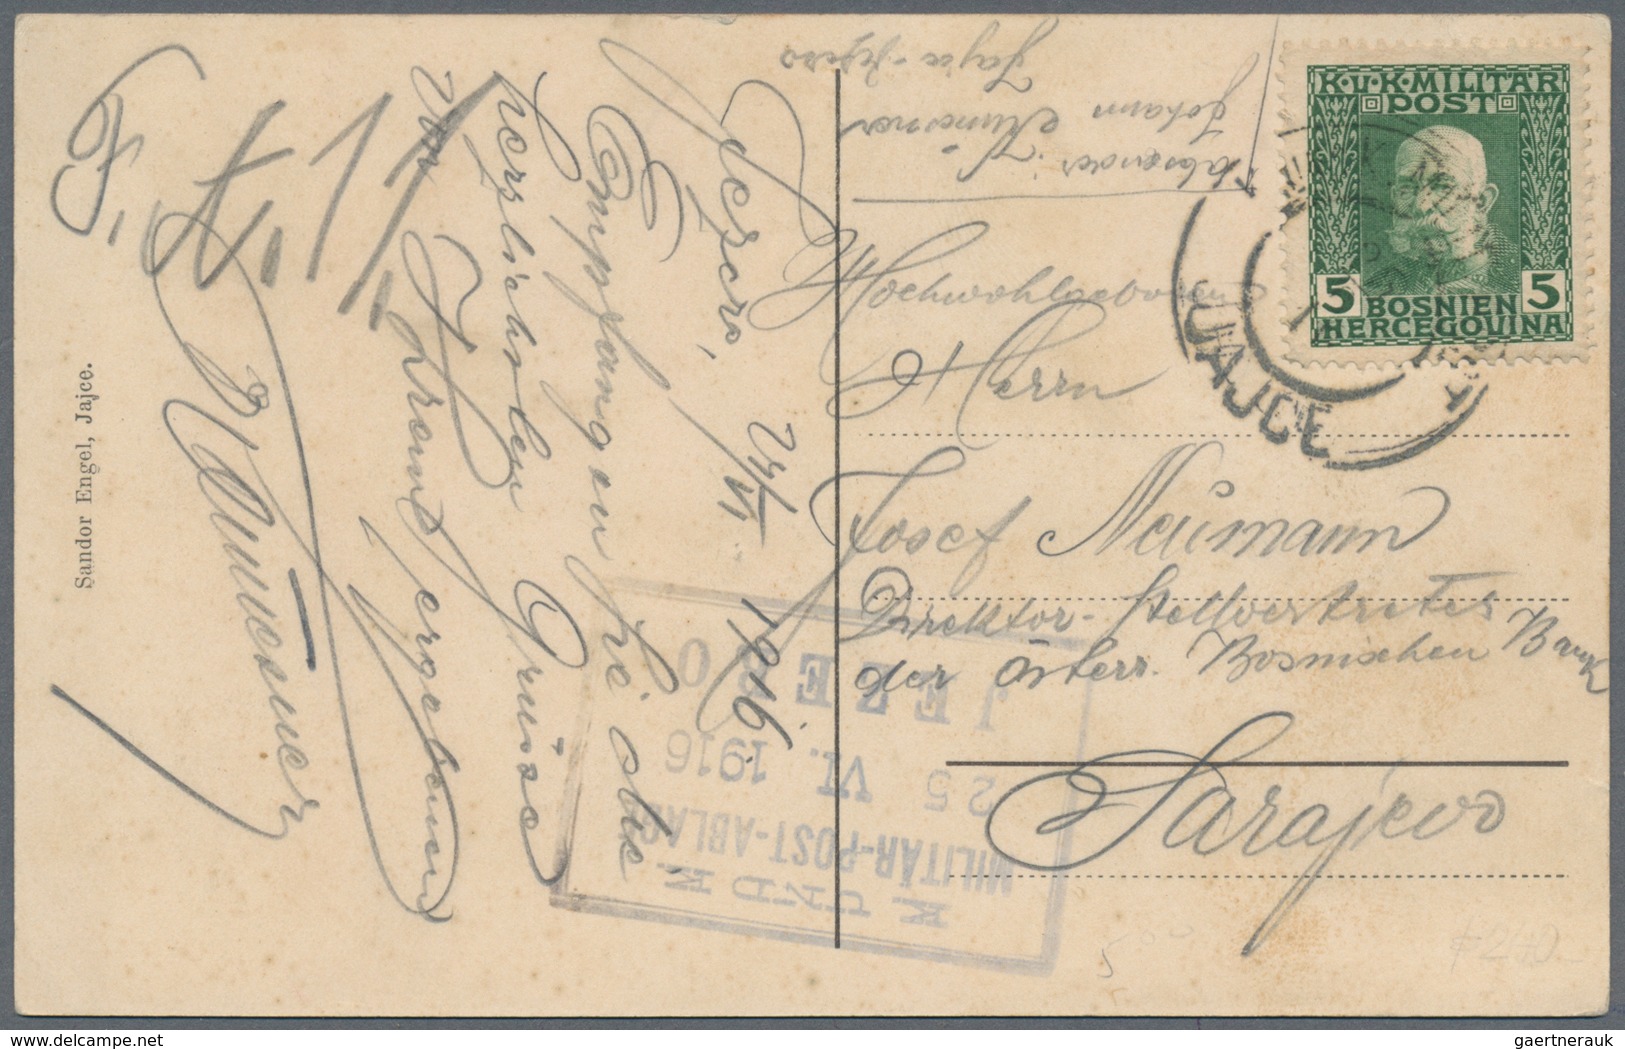 Absender:
Johann
Jajce-Jezero
K.U.K.MILITÄR
POST
5 BOSNIEN 5
HERCEGOVINA
JAJCE
Hochwohlgeboren
Herrn
Josef Neumann
Direktor-Stellvertreter
der österr. Bosnischen Bank
Sarajevo
Jezero, 24/VI. 1916.
Empfangen Sie die
herzlichsten Grüsse
von Ihrem ergebenen
Sandor Engel, Jajce.
K UND K
MILITÄR-POST-ABLAGE
25 VI. 1916
JEZERO
gaertnerauk